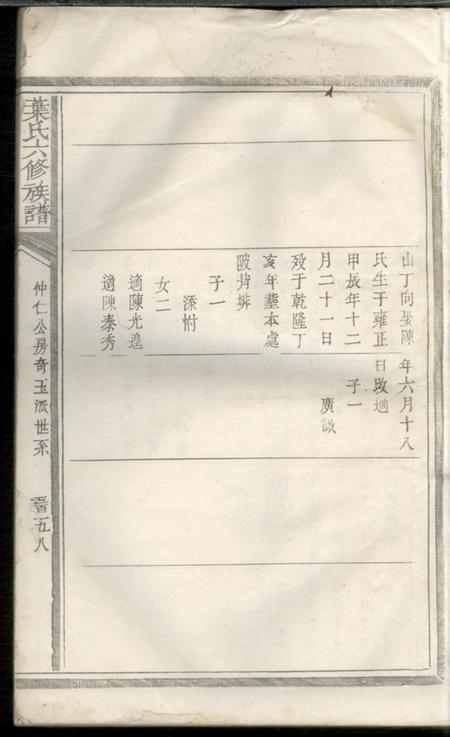 山丁向娶陳
氏生于雍正
甲辰年十二
月二十一日
歿于乾隆丁
亥年塟本處
陂背排
子一
添
女二
適陳光
適陳泰秀
年六月十八
日改適
子一
廣
葉氏六修族譜
仲仁公房奇玉派世系
五八